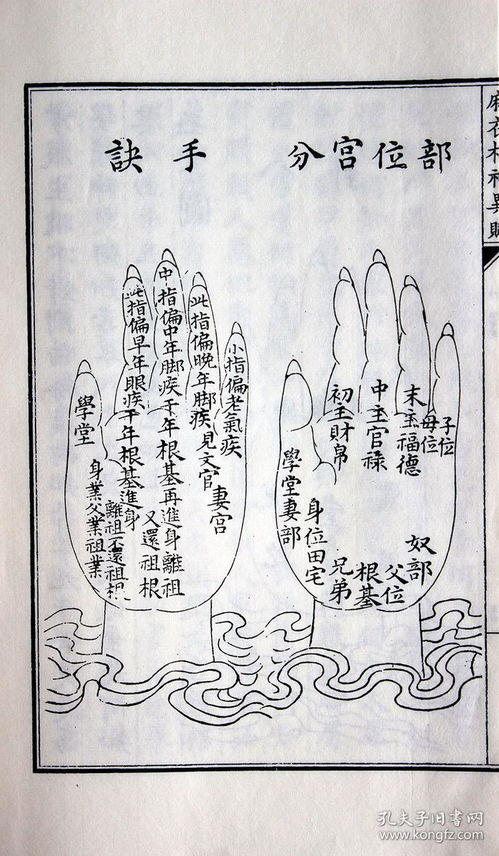 麻衣相神異賦
部位宮分
子位
母位
末主福德
中主官禄
初主財帛
奴部
父位
根基
兄弟
身位田宅
學堂妻部
手訣
小指偏老氣疾
妻宮
此指偏晚年脚疾見文官
中指偏中年脚疾千年根基再進身離祖
又還祖根
此指偏早年眼疾千年根基進身
離祖不還祖根
身業父業祖業
學堂
孔夫子旧书网
www.kongfz.com